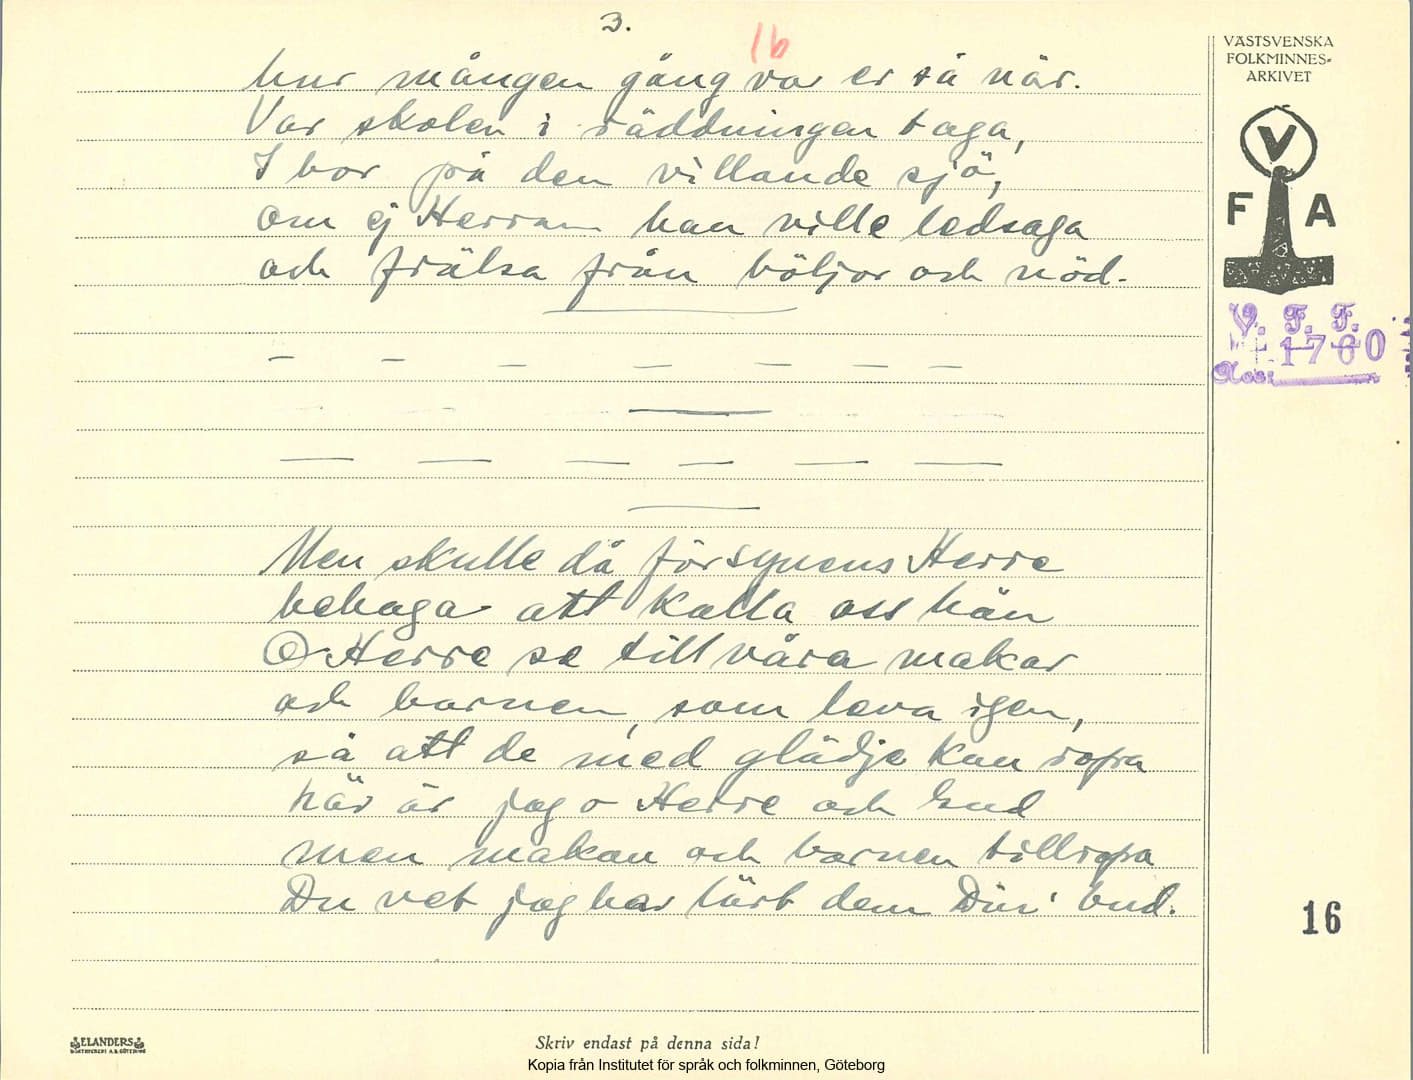 3.
16
hur mången gång var er så när.
Var skolen i räddningen taga,
I bor på den villande sjö,
om ej Herran han ville ledsaga
och frälsa från böljor och nöd.
Men skulle då försynens Herre
behaga att kalla oss hän
O Herre se till våra makar
och barnen, som leva igen,
så att de med glädje kan ropa
här är jag o Herre och Gud
men makan och barnen tillropa
Du vet jag har lärt dem Din bud.
VÄSTSVENSKA
FOLKMINNES-
ARKIVET
V
F A
V. F. F.
1760
Acc:
16
ELANDERS
Skriv endast på denna sida!
Kopia från Institutet för språk och folkminnen, Göteborg